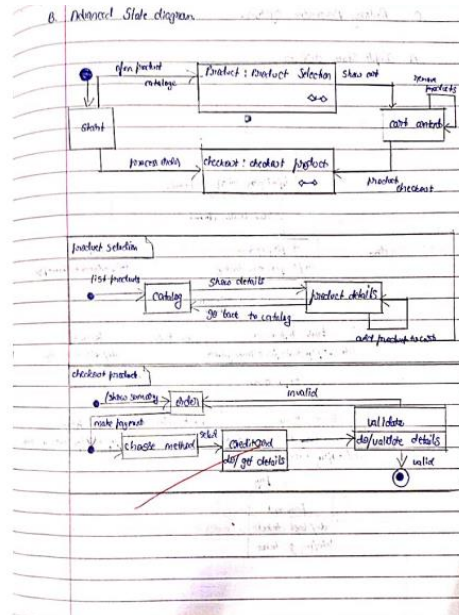 B. Advanced State diagram
open product
cataloge
Product : Product Selection
Show cart
remove
products
Start
cart contents
process order
checkout : checkout product
product
checkout
product selection
list products
catalog
show details
product details
go back to catalog
add product to cart
checkout product
/show summary
order
invalid
make payment
choose method
select
creditcard
do/get details
validate
do/validate details
valid